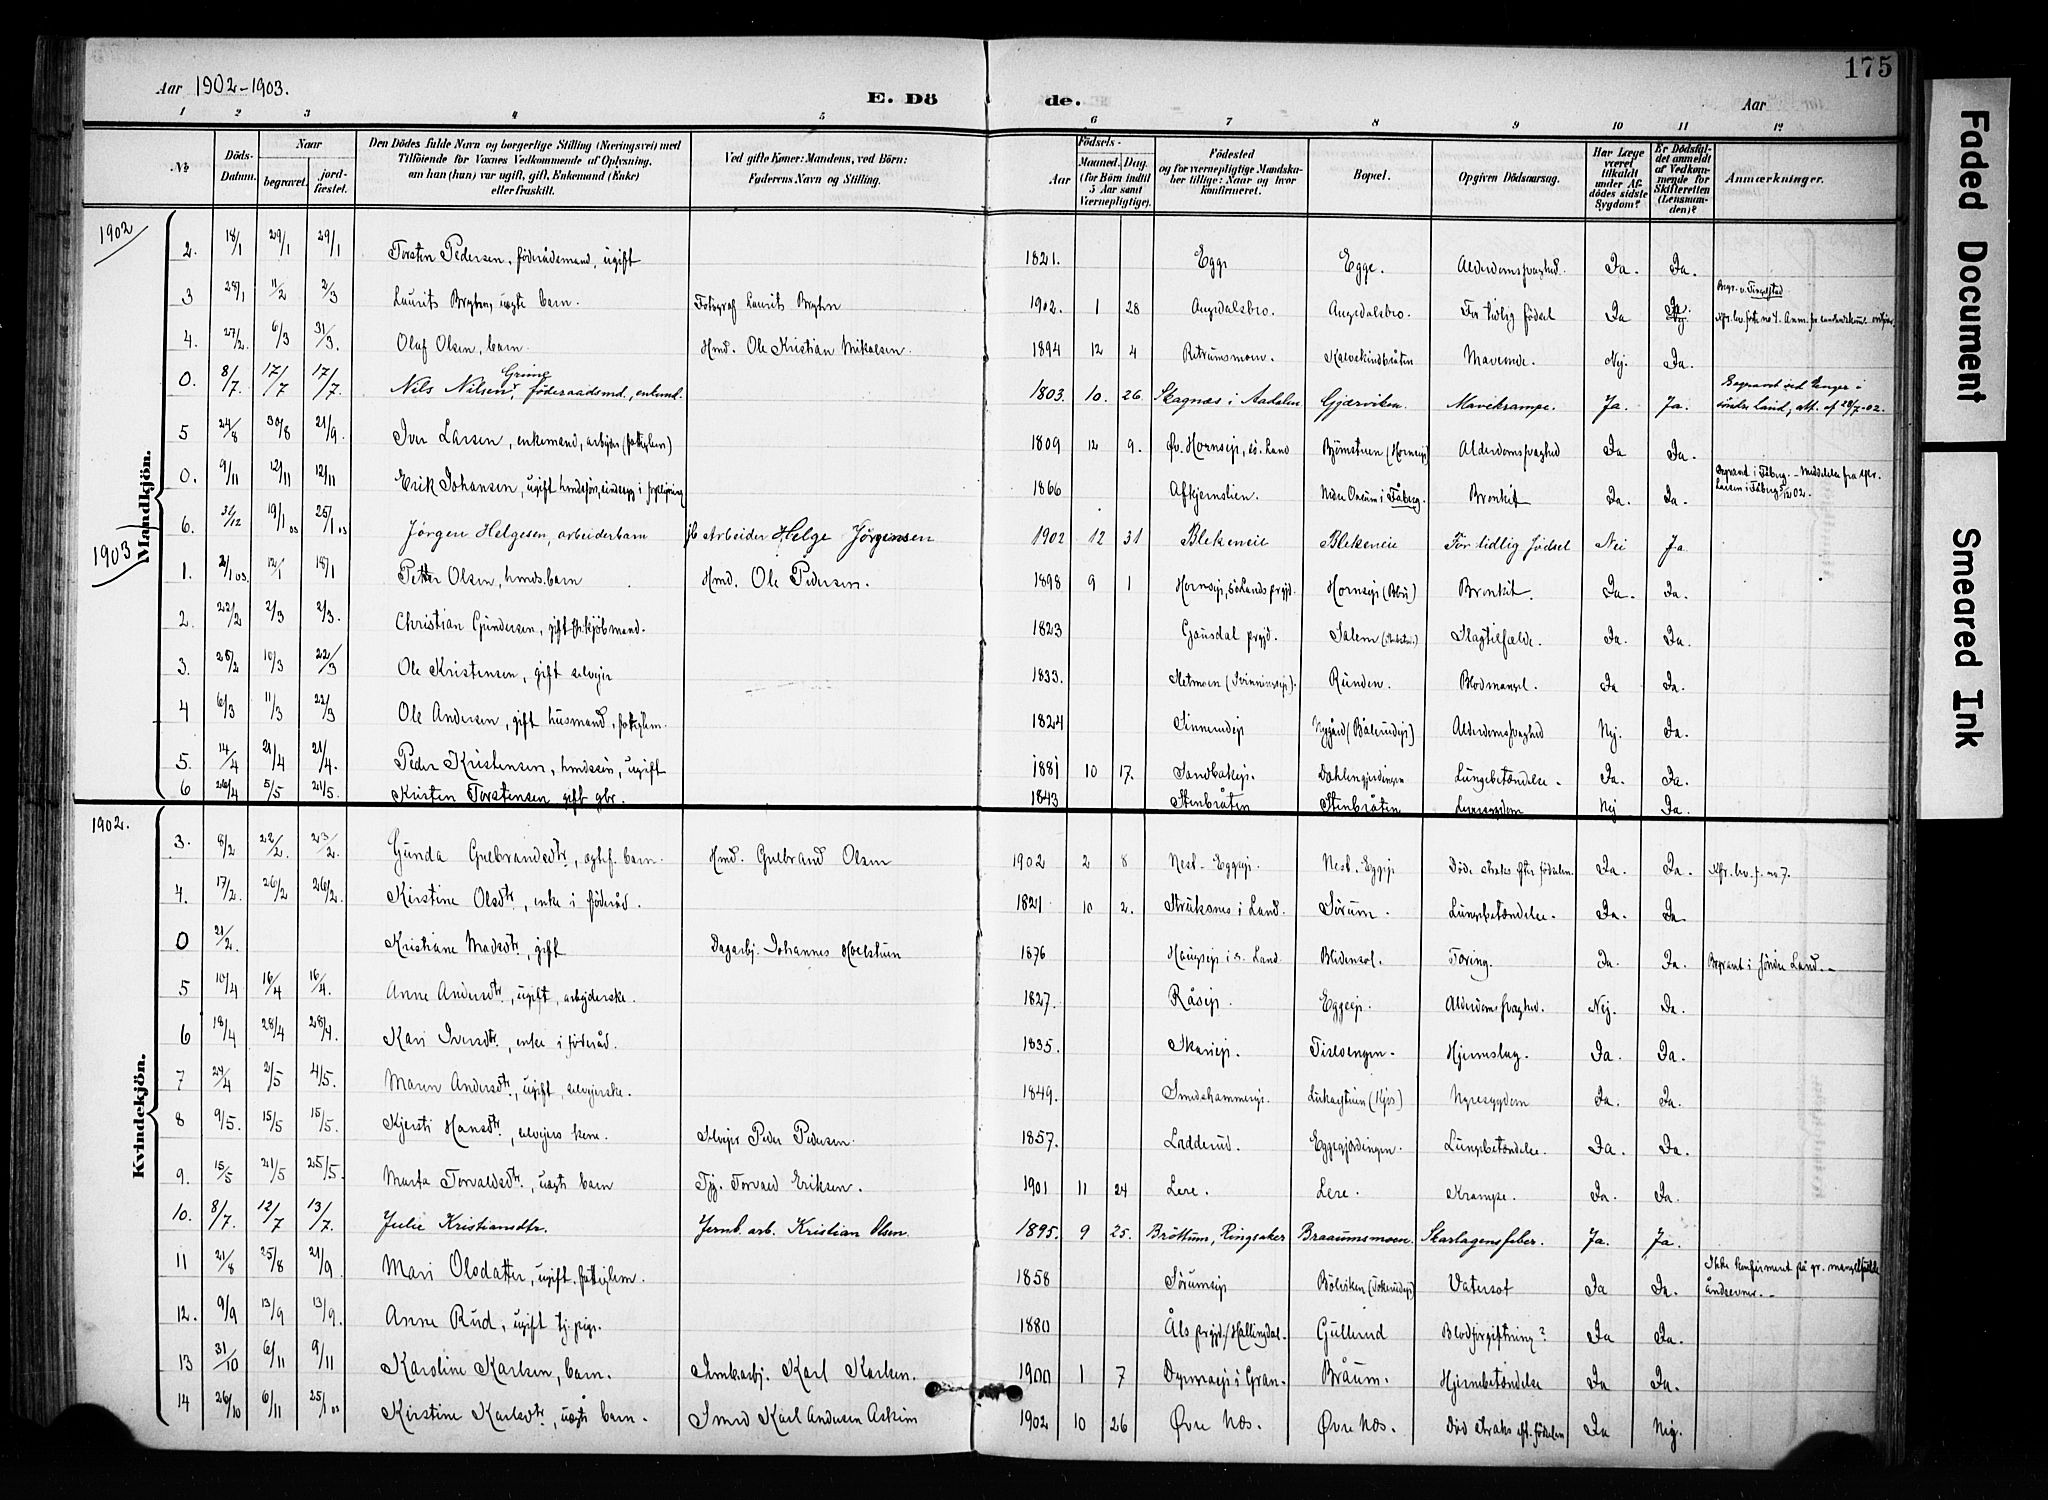 175
Aar 1902-1903.
E. Dö de.
Aar
1 2 3 4 5 6 7 8 9 10 11 12
No
Döds-Datum.
Naar
begravet.
jord-fæstet.
Den Dödes fulde Navn og borgerlige Stilling (Næringsvei) med
Tilföiende for Voxnes Vedkommende af Oplysning,
om han (hun) var ugift, gift, Enkemand (Enke)
eller fraskilt.
Ved gifte Koner: Mandens, ved Börn:
Faderens Navn og Stilling.
Födsels-
Aar
Maaned. Dag.
(for Börn indtil
5 Aar samt
Værnepligtige).
Födested
og for værnepligtige Mandska-
ber tillige: Naar og hvor
konfirmeret.
Bopæl.
Opgiven Dödsaarsag.
Har Læge
været
tilkaldt
under Af-
dödes sidste
Sygdom?
Er Dödsfal-
det anmeldt
af Vedkom-
mende for
Skifteretten
(Lensman-
den)?
Anmærkninger.
Mandkjön.
1902
2. 18/1 29/1 29/1 Torsten Pedersen, föderådsmand, ugift 1821. Egge Egge. Alderdomssvaghed. Ja. Ja.
3 28/1 11/2 2/3 Laurits Bryhn, uægte barn. Fotograf Laurits Bryhn 1902. 1 28 Augedalsbro. Augedalsbro. For tidlig födsel Ja Ja
Begr. v. Tingelstad
4. 27/2. 6/3 31/3. Olaf Olsen, barn. Hmd. Ole Kristian Mikalsen. 1894 12 4 Mavesaade. Nej. Ja.
0. 8/7. 17/7 17/7. Nils Nilsen Grime, föderaadsmd., enkemd. 1803. 10. 26. Skagnæs i Aadalen Gjærviken. Mavekrampe. Ja. Ja.
Begravet ved Enger i
söndre Land, att. af 28/7-02.
5 24/8 30/8 21/9. Iver Larsen, enkemand, arbejder (fattiglem) 1809 12 9. Öv. Hornsejs, s. Land Björnstuen (Hornsejs) Alderdomssvaghed Ja Ja.
0. 9/11 12/11 12/11 Erik Johansen, ugift 1866 Afkjernslien. Bronkit. Ja. Ja.
6. 31/12 19/1 03 25/1 03 Jörgen Helgesen, arbeiderbarn Arbeider Helge Jörgensen 1902 12 31 Blekeneie Blekeneie For tidlig födsel Nei Ja
1903
1. 2/1 03. 12/1 18/1 Petter Olsen, hmds. barn Hmd. Ole Pedersen. 1898 9 1 Hornsejs, S. Lands prgjd. Bronkit. Ja. Ja.
2. 22/2 2/3 2/3. Christian Gundersen, gift 1823 Gausdal prgjd. Salem Slagtilfælde. Ja. Ja.
3. 28/2 10/3 22/3 Ole Kristensen, gift selvejer 1833. Runden. Blodmangel. Ja Ja.
4 6/3 11/3 22/3 Ole Andersen, gift husmand, fattiglem. 1824 Nygård Alderdomssvaghed Nej. Ja.
5. 14/4 21/4 21/4. Peder Kristensen, hmdssön, ugift 1881 10 17. Sandbakejs. Lungebetændelse. Ja. Ja.
6 26/4 5/5 21/5. Kristen Torstensen gift gbr. 1843 Stenbråten Stenbråten Leversygdom Nej Ja.
Kvindekjön.
1902.
3. 8/2 22/2. 23/2. Gunda Gulbrandsdtr, barn. Hmd. Gulbrand Olsen 1902 2 8 Nesb. Eggejs. Nesb. Eggejs Döde straks efter födselen. Ja. Ja.
4. 17/2. 26/2 26/2. Kirstine Olsdtr, enke i föderåd. 1821 10 2. Struksnes i Land. Sörum. Lungebetændelse. Ja. Ja
0 21/2. Kristiane Madsdtr, gift Dagarbj. Johannes Hoelstuen 1876 Haugsejs i S. Land. Tæring. Ja. Ja. Begravet i Söndre Land.
5 10/4 16/4 16/4. Anne Andersdtr, ugift, arbejderske. 1827. Råsejs. Eggesejs. Alderdomssvaghed. Nej. Ja.
6 18/4 28/4 28/4. Kari Iversdtr, enke i föderåd. 1835. Skariejs. Hjerneslag. Ja. Ja.
7 24/4 2/5 4/5. Maren Andersdtr, ugift, selvejerske. 1849. Smedshammerejs. Nyresygdom Ja. Ja.
8 9/5. 15/5 15/5. Kjersti Hansdtr, selvejers kone. Selvejer Peder Pedersen. 1857. Ladderud. Eggegjordingen. Lungebetændelse. Ja. Ja.
9. 15/5 21/5 25/5. Marta Torvaldsdtr, uægte barn Tjg. Torvald Eriksen. 1901 11 24 Lere. Lere. Krampe. Ja. Ja.
10. 8/7. 12/7 13/7. Julie Kristiansdtr. Jernb. arb. Kristian Olsen. 1895. 9 25. Bröttum, Ringsaker Braaumsmoen. Skarlagensfeber. Ja. Ja.
11 21/8 25/8 21/9. Mari Olsdatter, ugift, fattiglem. 1858 Sörumsejs Vatersot Ja Ja.
Ikke konfirmeret på gr. mangelfulde
åndsevner.
12. 9/9 13/9 13/9. Anne Rud, ugift tj. pige. 1880 Åls prgjd. Hallingdal. Gullerud Blodforgiftning? Ja Ja.
13 31/10 6/11 9/11 Karoline Karlsen, barn. Jernbarbj. Karl Karlsen. 1900 1 7 Dynnaejs i Gran. Bråum. Hjernebetændelse Ja Ja.
14 26/10 6/11 25/1 03 Kirstine Karlsdtr, uægte barn. Smed Karl Andersen Askim 1902 10 26 Övre Næs. Övre Næs. Död straks eft. födselen Ja Nej.
Faded Document
Smeared Ink